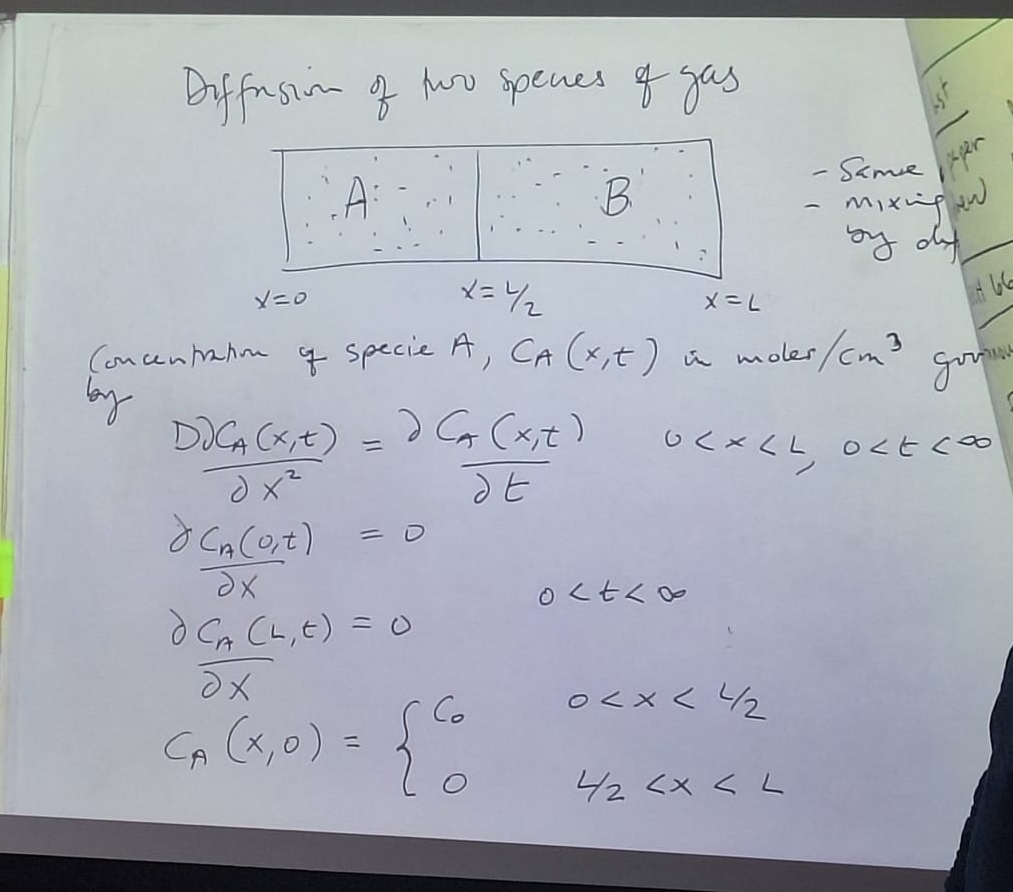 Diffusion of two species of gas
A B
x=0 x=L/2 x=L
- Same
- mixing
by
Concentration of specie A, C_A(x,t) in moles/cm³
by
D∂C_A(x,t)/∂x² = ∂C_A(x,t)/∂t 0<x<L, 0<t<∞
∂C_A(0,t)/∂x = 0
0<t<∞
∂C_A(L,t)/∂x = 0
C_A(x,0) = { C₀ 0<x<L/2
0 L/2<x<L